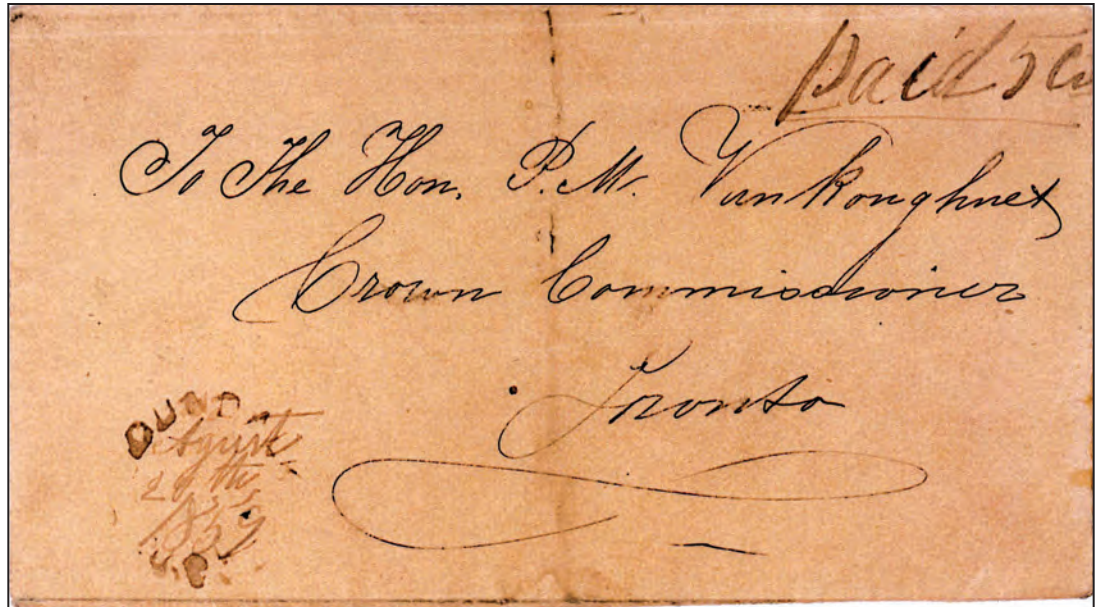 Paid 5
To The Hon. P. M. Vankoughnet
Crown Commissioner
Toronto
DUND
Agust
185